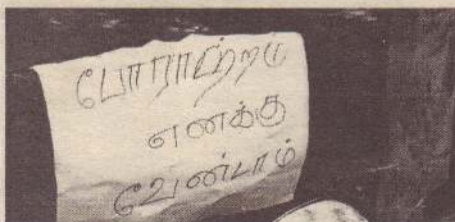 போராட்டம்
எனக்கு
வேண்டாம்